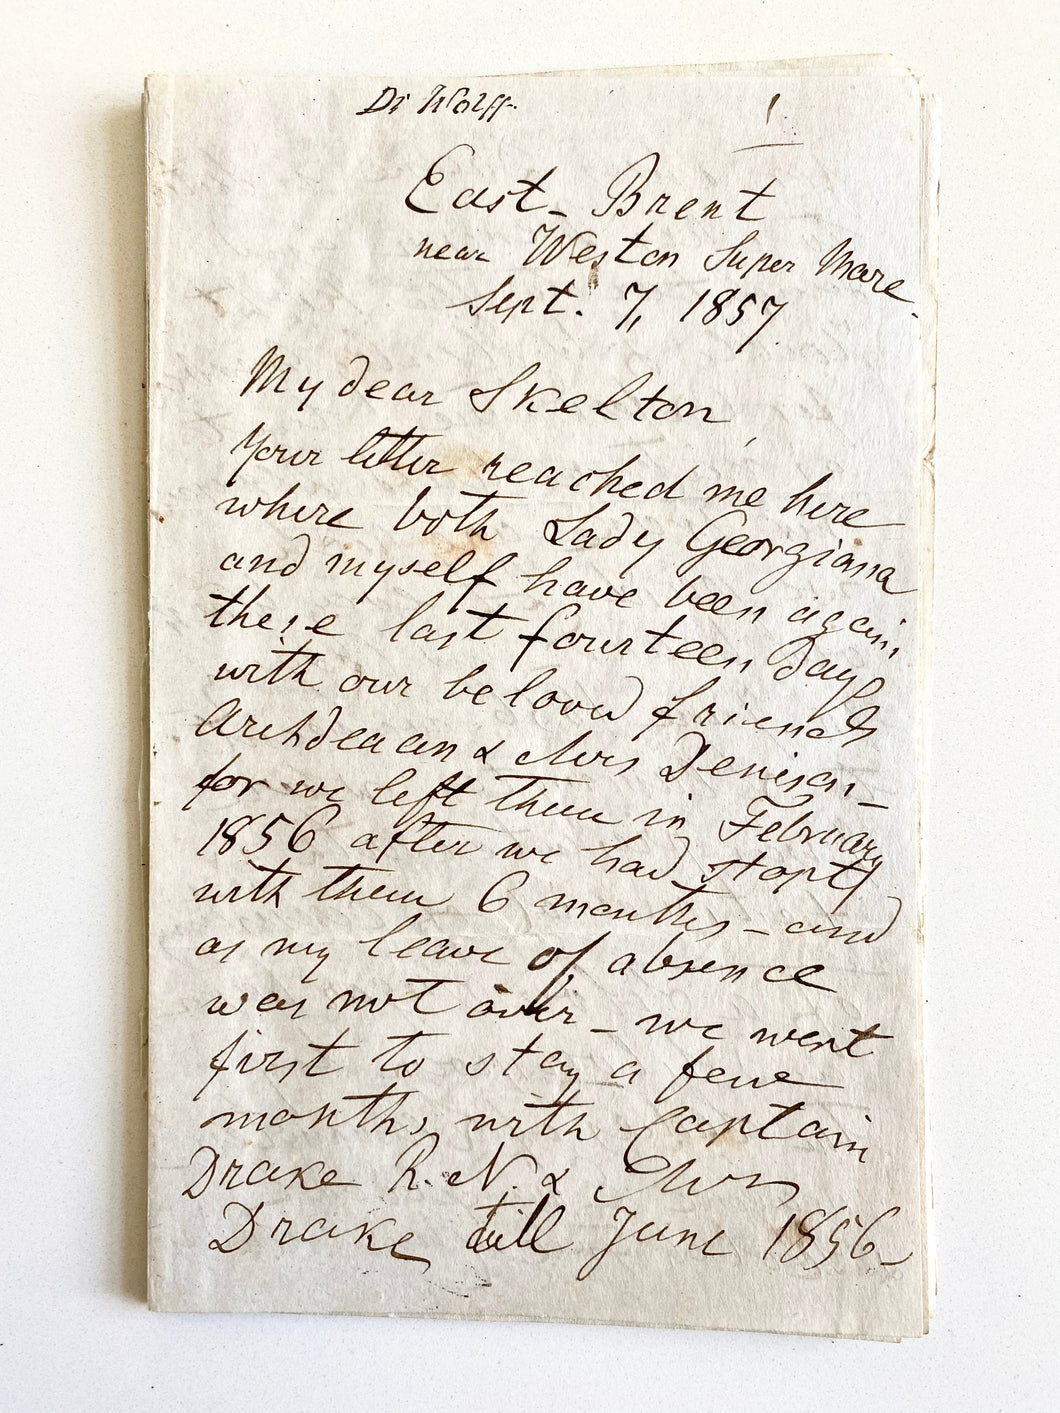 Dr Wolff.
1.
East-Brent
near Weston Super Mare.
Sept. 7, 1857
My dear Skelton,
Your letter reached me here
where both Lady Georgiana
and myself have been again,
these last fourteen days
with our beloved friends
Archdeacon & Mrs Denison–
for we left them in February
1856 after we had stopt
with them 6 months – and
as my leave of absence
was not over – we went
first to stay a few
months with Captain
Drake R. N. & Mrs
Drake till June 1856–